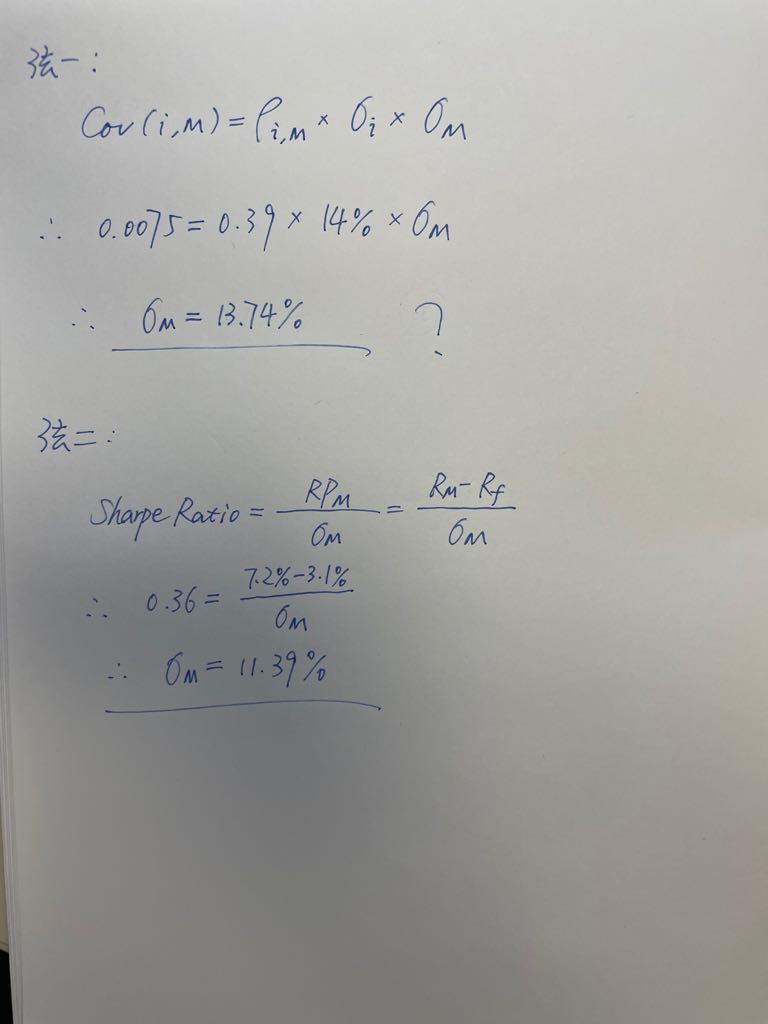 法一:
Cov(i,M) = ρi,M × σi × σM
∴ 0.0075 = 0.39 × 14% × σM
∴ σM = 13.74% ?
法二:
Sharpe Ratio = RPM / σM = RM - Rf / σM
∴ 0.36 = 7.2% - 3.1% / σM
∴ σM = 11.39%